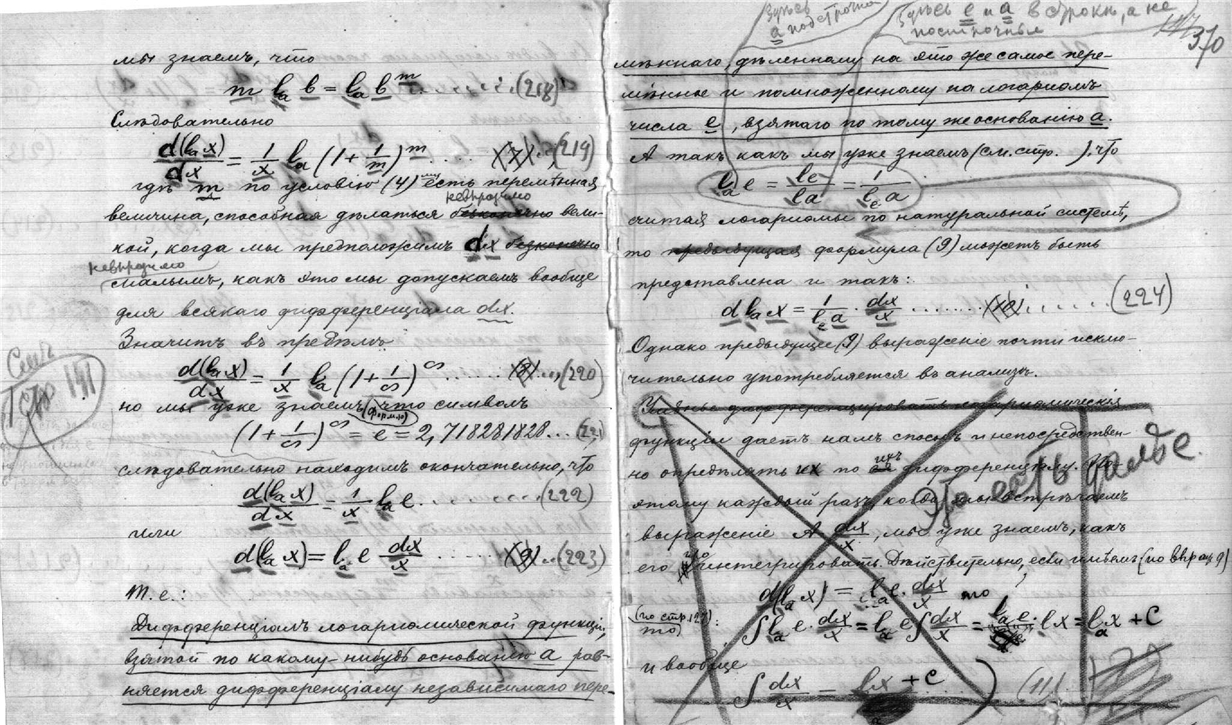 мы знаемъ, что
m lₐ b = lₐ bᵐ ........(218)
Слѣдовательно
d(lₐ x)/dx = 1/x lₐ (1 + 1/m)ᵐ .... (219)
гдѣ m по условію (4) есть перемѣнная
величина, способная дѣлаться безконечно невыразимо вели-
кой, когда мы предположимъ dx безконечно
невыразимо
малымъ, какъ это мы допускаемъ вообще
для всякаго дифференціала dx.
Значитъ въ предѣлѣ
d(lₐ x)/dx = 1/x lₐ (1 + 1/∞)^∞ ........ (220)
Стр. 191
но мы уже знаемъ, что символъ
(1 + 1/∞)^∞ = e = 2,718281828... (221)
слѣдовательно находимъ окончательно, что
d(lₐ x)/dx = 1/x lₐ e. (222)
или
d(lₐ x) = lₐ e dx/x ........ (9)...(223)
т. е.:
Дифференціалъ логариѳмической функціи,
взятой по какому-нибудь основанію a рав-
няется дифференціалу независимаго пере-
Здѣсь a подстрочная
Здѣсь e и a въ строкѣ, а не
подстрочныя
370
мѣннаго, дѣленному на это же самое пере-
мѣнное и помноженному на логариѳмъ
числа e, взятаго по тому же основанію a.
А такъ какъ мы уже знаемъ (см. стр. ), что
lₐ e = le/la = 1/lₑ a
считая логариѳмы по натуральной системѣ,
то предыдущая формула (9) можетъ быть
представлена и такъ:
d lₐ x = 1/lₑ a · dx/x ........ (10) ..... (224)
Однако предыдущее (9) выраженіе почти исклю-
чительно употребляется въ анализѣ.
дифференцировать логариѳмическія
функціи даетъ намъ способъ и непосредствен-
но опредѣлять ихъ по ихъ дифференціалу.
Это есть далѣе.
этому каждый разъ, когда мы встрѣчаемъ
выраженіе A dx/x, мы уже знаемъ, какъ
его интегрировать. Дѣйствительно, если
d(lₐ x) = lₐ e · dx/x то
(по стр 127)
то: ∫ lₐ e · dx/x = lₐ e ∫ dx/x = lₐ e · lx = lₐ x + C
и вообще
∫ dx/x = lx + C (11)